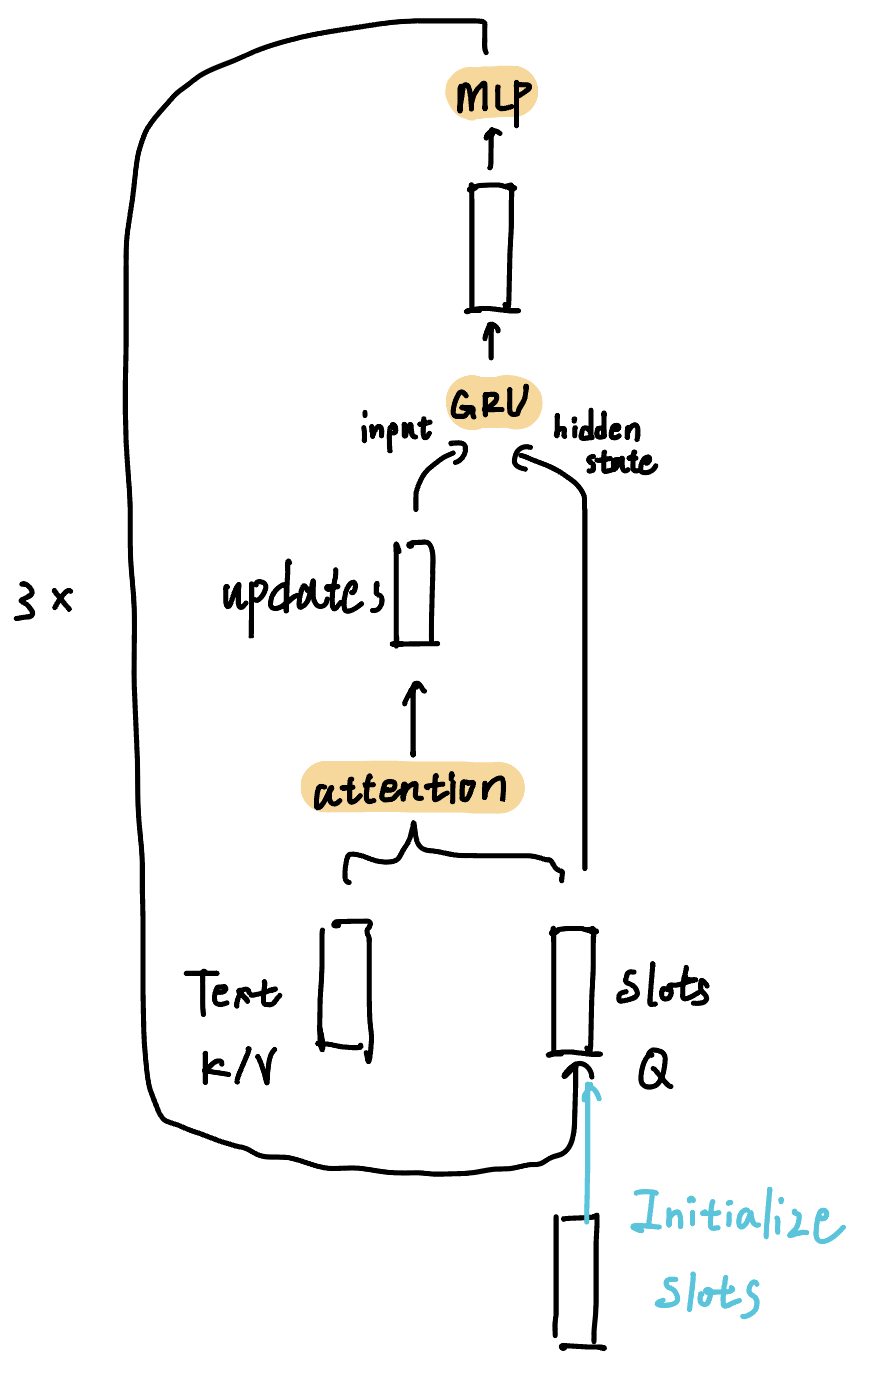 MLP
GRU
input
hidden
state
3 x
updates
attention
Text
K/V
slots
Q
Initialize
slots